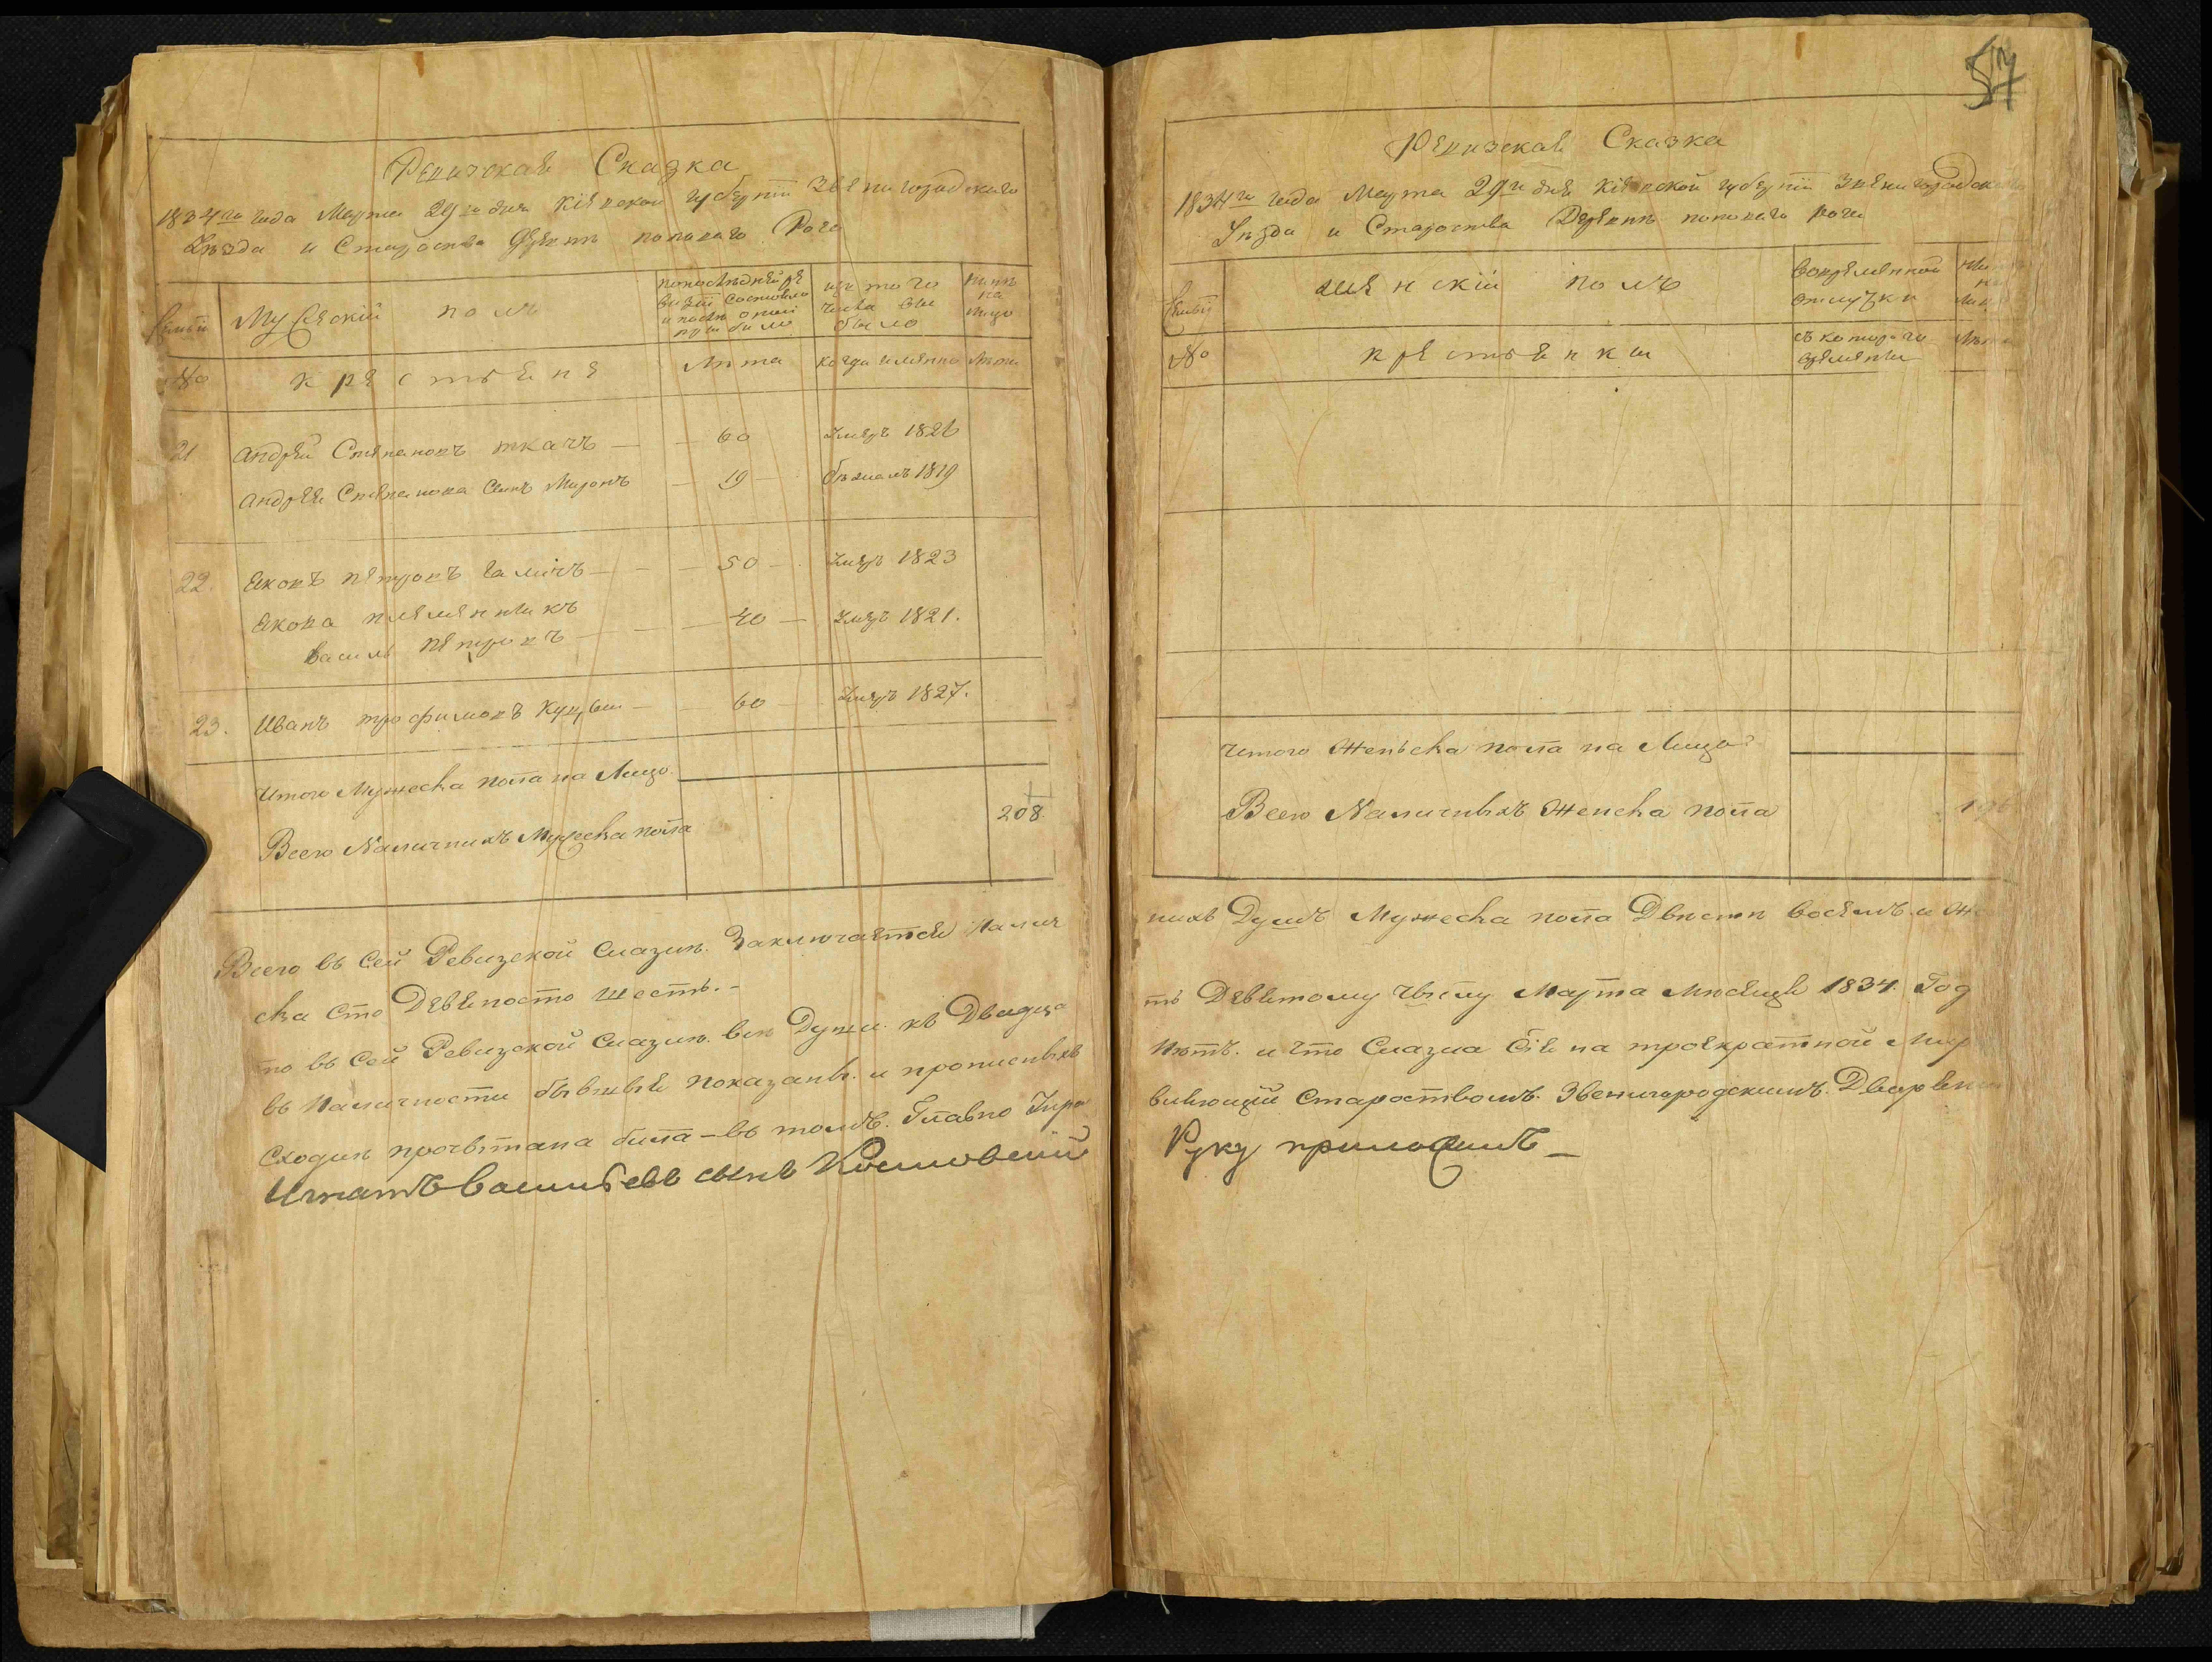 Ревизская Сказка
1834го года Марта 29го дня Кіевской губерніи Звенигородскаго
Уѣзда и Староства Деревнѣ поповаго Рога
Семьи
Мужескій полъ
попослѣдней ре
визіи состояло
и послѣ оной
прибыло
изъ того
числа вы
было
нынѣ
на
лицо
№
крестьяне
Лѣта
когда именно
Лѣта
21
андрей Степановъ ткачъ — 60 умеръ 1826
андрея Степанова сынъ Миронъ — 19 — бѣжалъ 1819
22.
яковъ петровъ — 50 — умеръ 1823
якова племянникъ
василь петровъ — 40 — умеръ 1821.
23.
Иванъ трофимовъ — 60 — умеръ 1827.
Итого Мужеска пола на Лицо
Всего Наличныхъ Мужеска пола 208.
Всего въ Сей Ревизской Сказкѣ. Заключается Налич
ска Сто Девяносто шесть.-
то въ Сей Ревизской Сказкѣ. всѣ Души. къ Двадца
въ Наличности бывшые показаны. и прописныхъ
Сходкѣ прочытана была – въ томъ. Главно Упра
Игнатъ Васильевъ сынъ
57
Ревизская Сказка
1834го года Марта 29го дня Кіевской губерніи Звенигородск
Уѣзда и Староства Деревнѣ поповаго рога
Семьи
женскій полъ
вовременной
отлучки
№
крестьянки
съ которого
времяни
Итого Женьска пола на Лицо
Всего Наличныхъ Женска пола 196
ныхъ Душъ Мужеска пола Двѣсти восемъ. и Же
ть Девятому Чыслу Марта Мѣсяца 1834. Год
Нѣтъ. и что Сказка Сія на троекратной Мир
вляющій Староствомъ. Звенигородскимъ. Дворян
Руку приложилъ —